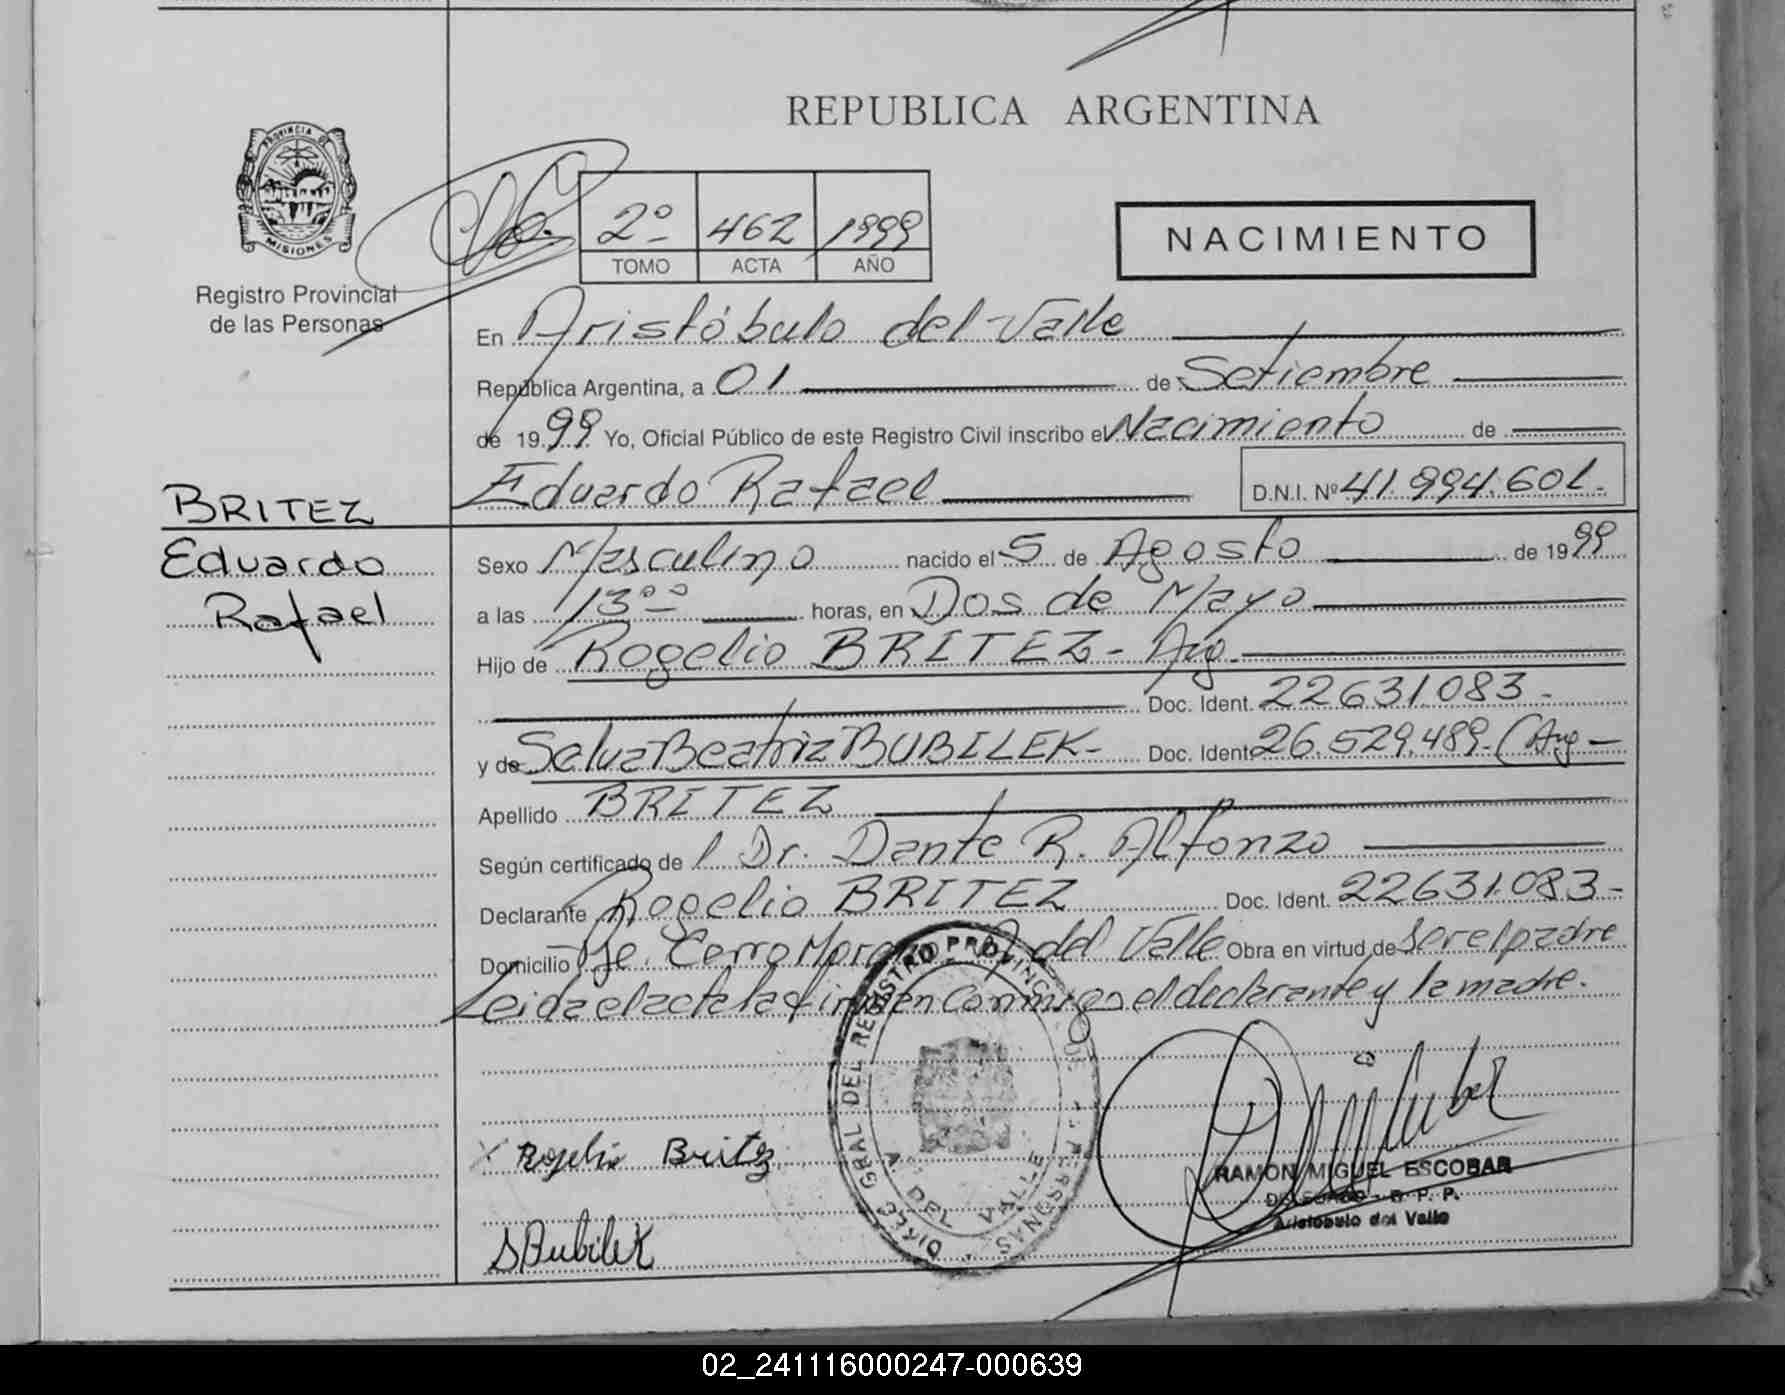 REPUBLICA ARGENTINA
PROVINCIA DE
MISIONES
Registro Provincial
de las Personas
2º 462 1999
TOMO ACTA AÑO
NACIMIENTO
En Aristóbulo del Valle
República Argentina, a 01 de Setiembre
de 1999 Yo, Oficial Público de este Registro Civil inscribo el Nacimiento de
Eduardo Rafael D.N.I. Nº 41.994.601.
BRITEZ
Eduardo
Rafael
Sexo Masculino nacido el 5 de Agosto de 1999
a las 13ºº horas, en Dos de Mayo
Hijo de Rogelio BRITEZ - Arg.
Doc. Ident. 22631.083-
y de Selva Beatriz BUBILEK- Doc. Ident. 26.529.489-(Arg-
Apellido BRITEZ
Según certificado de Dr. Dante R. Alfonzo
Declarante Rogelio BRITEZ Doc. Ident. 22631.083-
Domicilio Pje. Cerro del Valle Obra en virtud de ser el padre
Leida el acta la firman conmigo el declarante y la madre.
DIREC GRAL DEL REGISTRO PROVINCIAL DE LAS PERSONAS
A. DEL VALLE
x Rogelio Britez
S Bubilek
RAMON MIGUEL ESCOBAR
DELEGADO - R. P. P.
Aristobulo del Valle
02_241116000247-000639